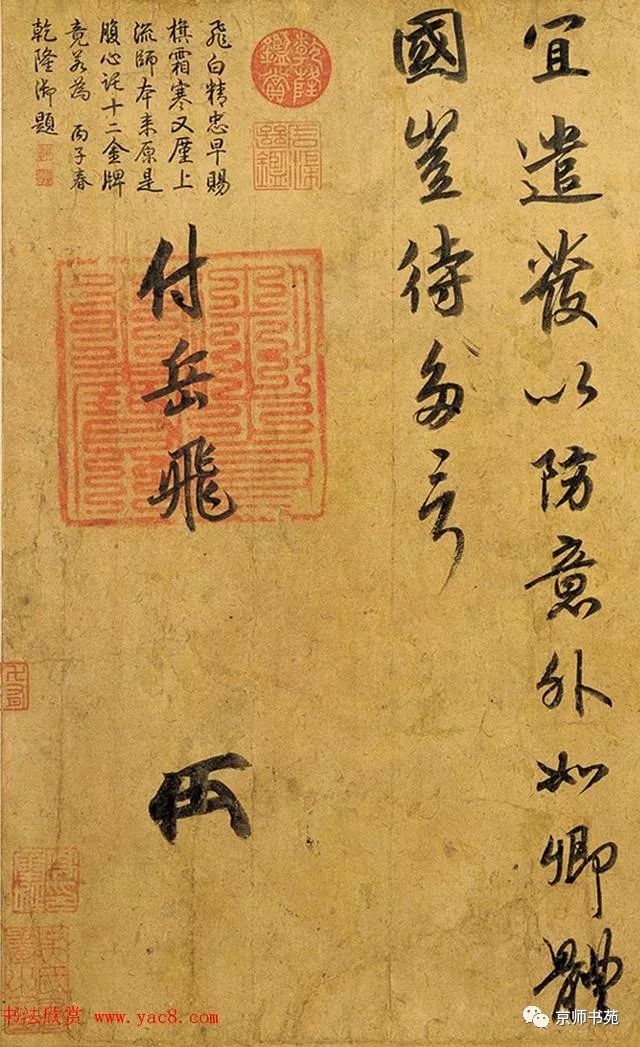 宜遣發以防意外如卿體
國豈待多言
付岳飛
乾隆鑑賞
飛白精忠早賜
旗霜寒又廑上
流師本來原是
腹心託十二金牌
竟若為 丙子春
乾隆御題
书法欣赏 www.yac8.com
京师书苑